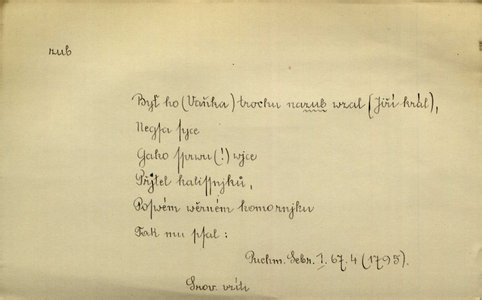 zub
Byť ho (Vaňka) trochu nazub wzal (Jiří král),
Negsa syce
Gako sprwu (!) wjce
Přjtel kališnjků,
Poswém wěrném komornjku
Tak mu psal:
Puchm. Sebr. I. 67. 4 (1795).
Srov. vzíti